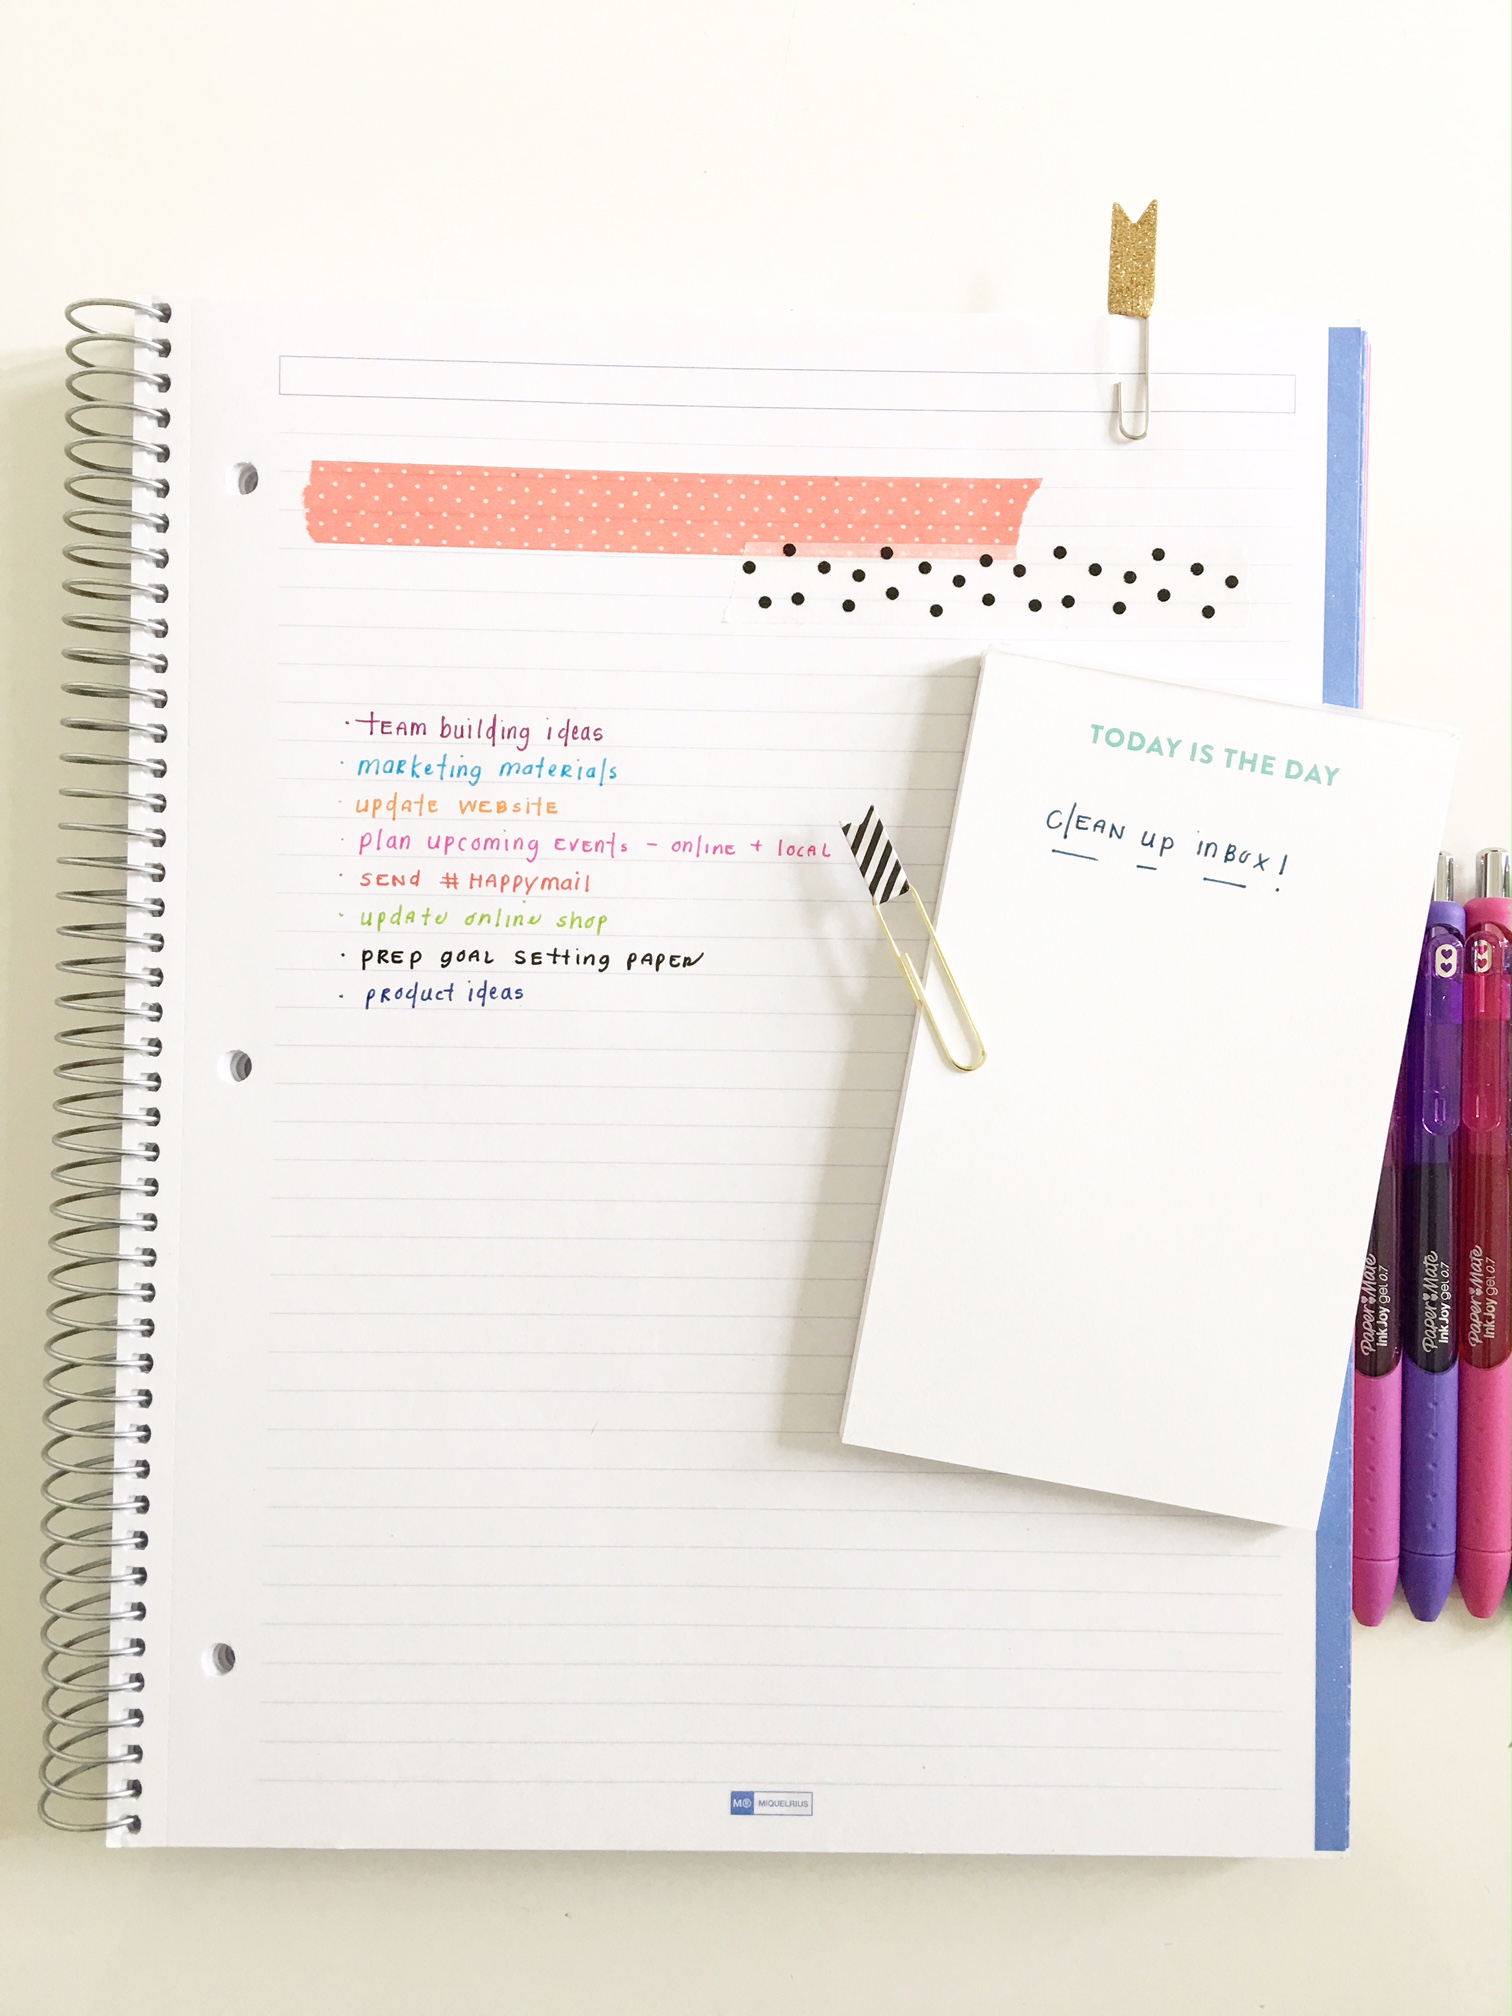 · tEAM building ideas
· marketing materials
· update WEBSITE
· plan upcoming EVENts - online + LOCAL
· SEND # HAPPymail
· update online shop
· PREP GOAL SEtting PAPER
· product ideas
TODAY IS THE DAY
clEAN up inBox!
Paper Mate
InkJoy gel 0.7
Paper Mate
InkJoy gel 0.7
Paper Mate
InkJoy gel 0.7
M® MIQUELRIUS